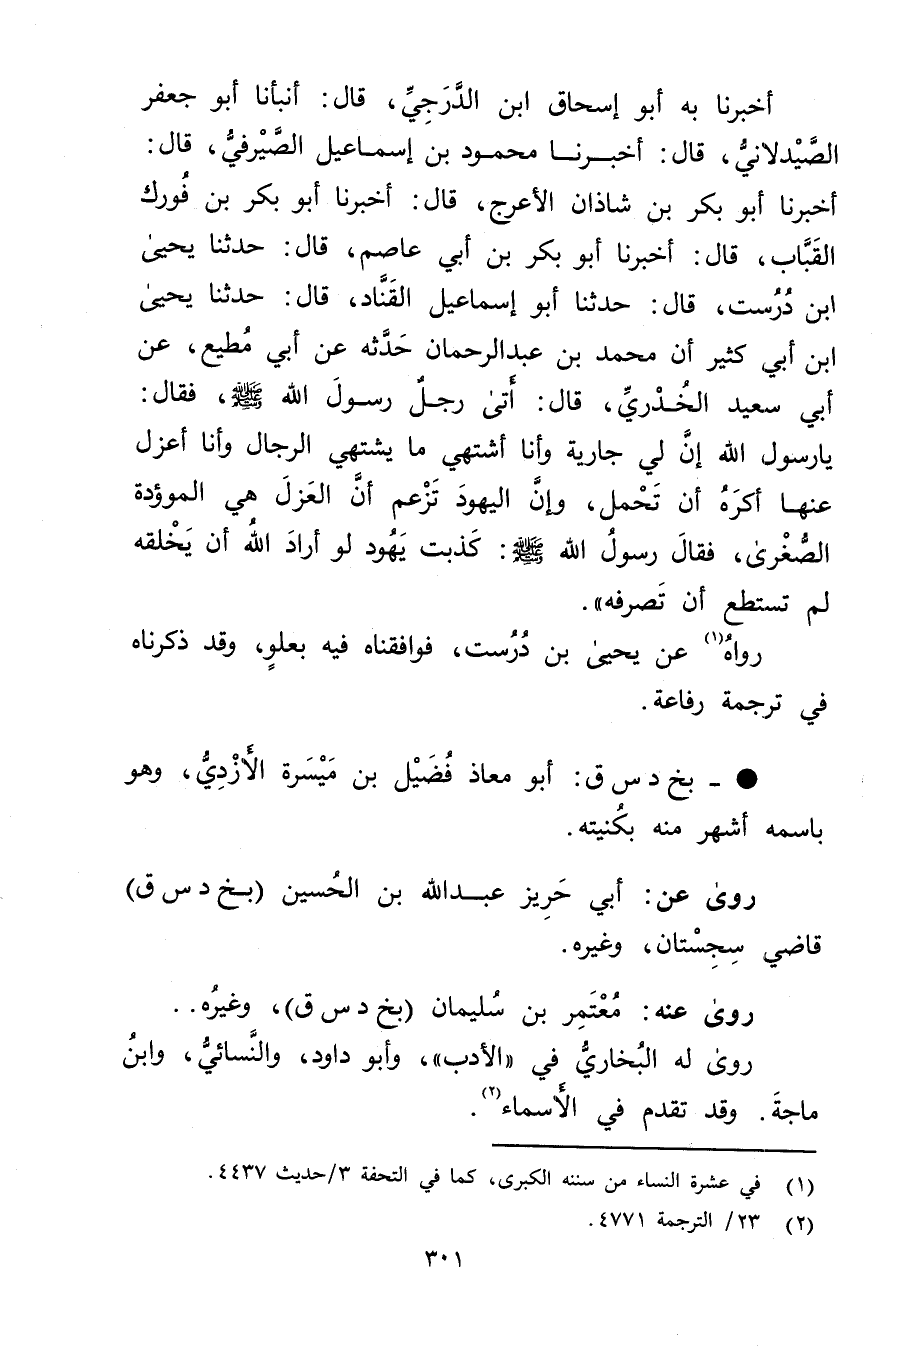 أخبرنا به أبو إسحاق ابن الدَّرَجِيِّ، قال: أنبأنا أبو جعفر
الصَّيْدلانيُّ، قال: أخبرنا محمود بن إسماعيل الصَّيْرفيُّ، قال:
أخبرنا أبو بكر بن شاذان الأعرج، قال: أخبرنا أبو بكر بن فُورك
القَبَّاب، قال: أخبرنا أبو بكر بن أبي عاصم، قال: حدثنا يحيىٰ
ابن دُرُست، قال: حدثنا أبو إسماعيل القَنَّاد، قال: حدثنا يحيىٰ
ابن أبي كثير أن محمد بن عبدالرحمان حَدَّثه عن أبي مُطيع، عن
أبي سعيد الخُدْريِّ، قال: أَتىٰ رجلٌ رسولَ الله ﷺ، فقال:
يارسول الله إنَّ لي جارية وأنا أشتهي ما يشتهي الرجال وأنا أعزل
عنها أكرَهُ أن تَحْمل، وإنَّ اليهودَ تَزْعم أنَّ العَزلَ هي الموؤدة
الصُّغْرىٰ، فقالَ رسولُ الله ﷺ: كَذبت يَهُود لو أرادَ اللهُ أن يَخْلقه
لم تستطع أن تَصرفه».
رواهُ(١) عن يحيىٰ بن دُرُست، فوافقناه فيه بعلوٍ، وقد ذكرناه
في ترجمة رفاعة.
● ـ بخ د س ق: أبو معاذ فُضَيْل بن مَيْسَرة الأَزْدِيُّ، وهو
باسمه أشهر منه بكُنيته.
روىٰ عن: أبي حَرِيز عبدالله بن الحُسين (بخ د س ق)
قاضي سِجِسْتان، وغيره.
روىٰ عنه: مُعْتَمِر بن سُليمان (بخ د س ق)، وغيرُه. .
روىٰ له البُخاريُّ في «الأدب»، وأبو داود، والنَّسائيُّ، وابنُ
ماجةَ. وقد تقدم في الأَسماء(٢).
(١) في عشرة النساء من سننه الكبرى، كما في التحفة ٣/حديث ٤٤٣٧.
(٢) ٢٣/ الترجمة ٤٧٧١.
٣٠١